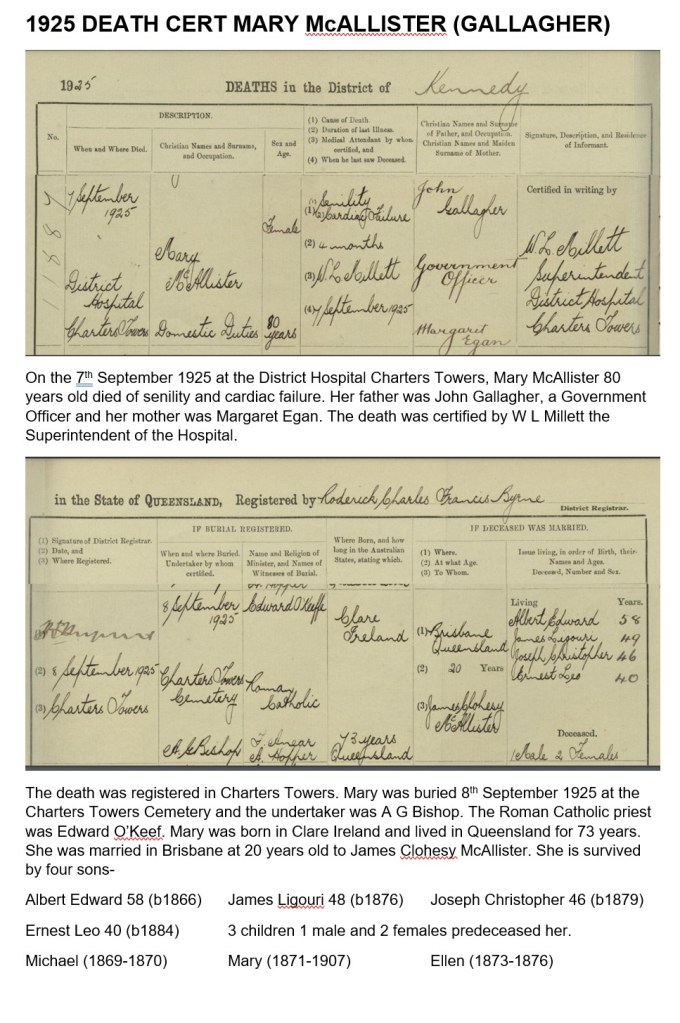 1925 DEATH CERT MARY McALLISTER (GALLAGHER)
1925 DEATHS in the District of Kennedy
DESCRIPTION.
No.
When and Where Died.
Christian Names and Surname, and Occupation.
Sex and Age.
(1) Cause of Death
(2) Duration of last Illness
(3) Medical Attendant by whom certified, and
(4) When he last saw Deceased.
Christian Names and Surname of Father, and Occupation.
Christian Names and Maiden Surname of Mother.
Signature, Description, and Residence of Informant.
7 September
1925
District
Hospital
Charters Towers
Mary
McAllister
Domestic Duties
Female
80
years
(1) Senility
(2) Cardiac Failure
(2) 4 months
(3) W. L. Millett
(4) 7 September 1925
John
Gallagher
Government
Officer
Margaret
Egan
Certified in writing by
W. L. Millett
Superintendent
District Hospital
Charters Towers
On the 7th September 1925 at the District Hospital Charters Towers, Mary McAllister 80
years old died of senility and cardiac failure. Her father was John Gallagher, a Government
Officer and her mother was Margaret Egan. The death was certified by W L Millett the
Superintendent of the Hospital.
in the State of QUEENSLAND, Registered by Roderick Charles Francis Byrne
District Registrar.
(1) Signature of District Registrar.
(2) Date, and
(3) Where Registered.
IF BURIAL REGISTERED.
When and where Buried. Undertaker by whom certified.
Name and Religion of Minister, and Names of Witnesses of Burial.
Where Born, and how long in the Australian States, stating which.
IF DECEASED WAS MARRIED.
(1) Where.
(2) At what Age.
(3) To Whom.
Issue living, in order of Birth, their Names and Ages.
Deceased, Number and Sex.
(2) 8 September 1925
(3) Charters Towers
8 September
1925
Charters Towers
Cemetery
A. G. Bishop
Edward O'Keeffe
Roman
Catholic
A. Hopper
Clare
Ireland
73 years
Queensland
(1) Brisbane
Queensland
(2) 20 Years
(3) James Clohesy
McAllister
Living Years.
Albert Edward 58
James Ligouri 49
Joseph Christopher 46
Ernest Leo 40
Deceased.
1 Male 2 Females
The death was registered in Charters Towers. Mary was buried 8th September 1925 at the
Charters Towers Cemetery and the undertaker was A G Bishop. The Roman Catholic priest
was Edward O'Keef. Mary was born in Clare Ireland and lived in Queensland for 73 years.
She was married in Brisbane at 20 years old to James Clohesy McAllister. She is survived
by four sons-
Albert Edward 58 (b1866) James Ligouri 48 (b1876) Joseph Christopher 46 (b1879)
Ernest Leo 40 (b1884) 3 children 1 male and 2 females predeceased her.
Michael (1869-1870) Mary (1871-1907) Ellen (1873-1876)